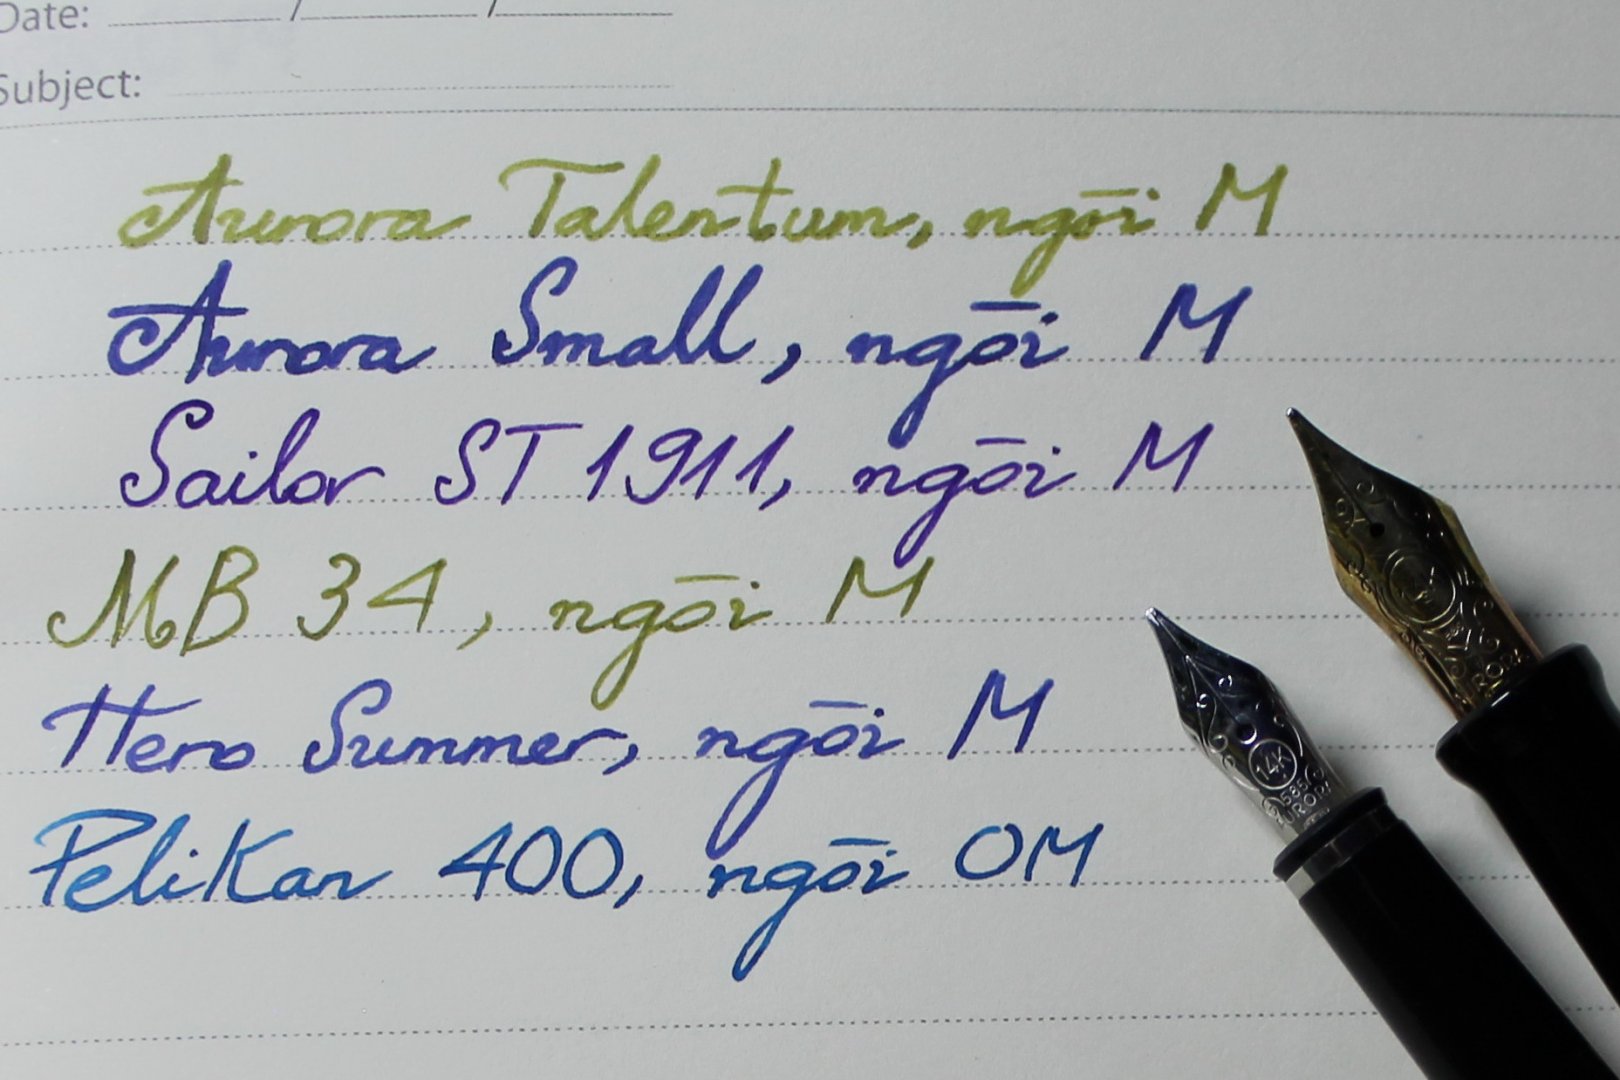 Date: / /
Subject:
Aurora Talentum, ngòi M
Aurora Small, ngòi M
Sailor ST 1911, ngòi M
MB 34, ngòi M
Hero Summer, ngòi M
Pelikan 400, ngòi OM
14K
585